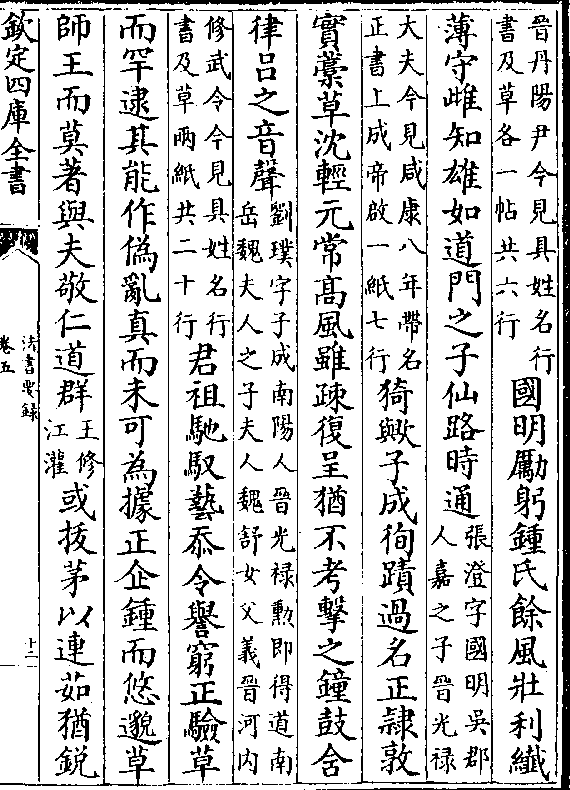 晉丹陽尹今見具姓名行
書及草各一帖共六行
國明勵躬鍾氏餘風壯利纖
薄守雌知雄如道門之子仙路時通
張澄字國明吳郡
人嘉之子晉光祿
大夫今見咸康八年帶名
正書上成帝啟一紙七行
猗歟子成徇蹟過名正隷敦
實藁草沈輕元常髙風雖疎復呈猶不考擊之鐘鼓舍
律吕之音聲
劉璞字子成南陽人晉光禄勲即得道南
岳魏夫人之子夫人魏舒女父義晉河内
修武令今見具姓名行
書及草兩紙共二十行
君祖馳馭藝忝令譽窮正驗草
而罕逮其能作偽亂真而未可為據正企鍾而悠邈草
師王而莫著與夫敬仁道群
王修
江灌
或拔茅以連茹猶銳
欽定四庫全書
法書要録
卷五
十二